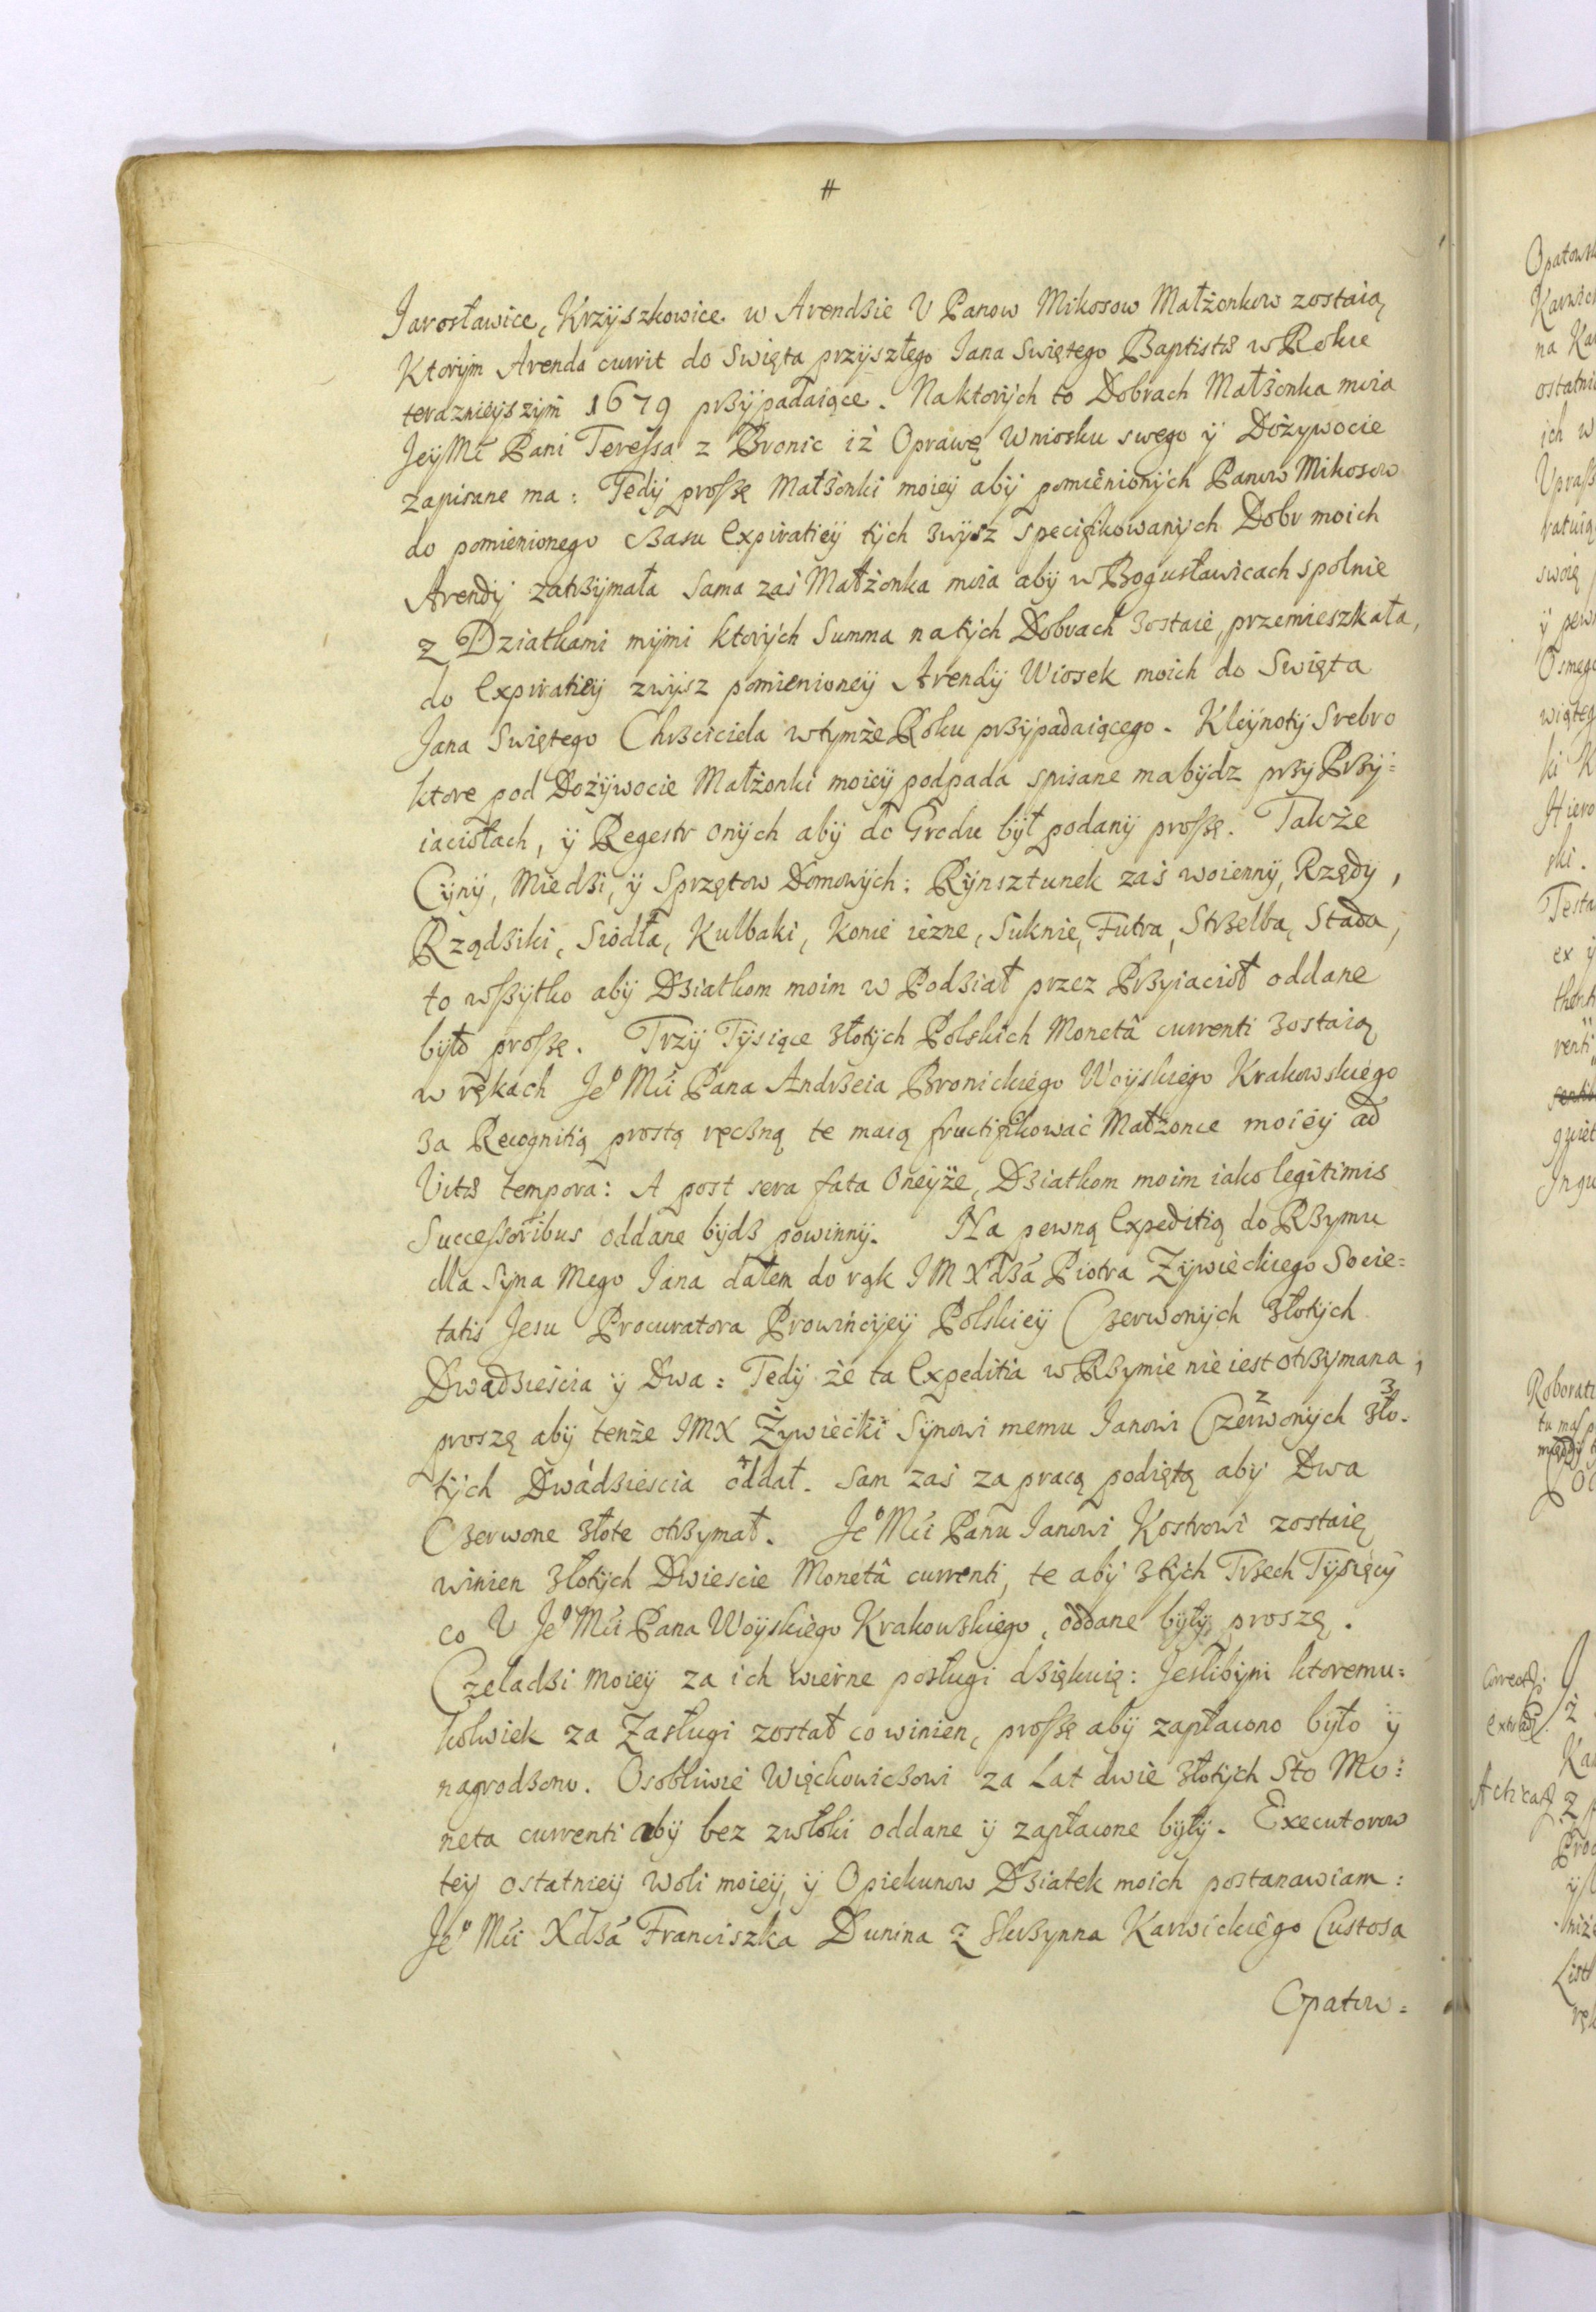 #
Jarosławice, Krzyszkowice w Arendzie V Panow Mikosow Małżonkow zostaią
Ktorÿm Arenda currit do Swięta przÿszłego Jana Swiętego Baptistæ w Roku
teraznieÿszÿm 1679 przÿpadaiące. Na ktorÿch to Dobrach Małżonka moia
JeÿMć Pani Teressa z Bronic iż Oprawę Wniosku swego ÿ Dożywocie
zapisane ma: Tedÿ proszę Małżonki moieÿ abÿ pomienionÿch Panow Mikosow
do pomienionego czasu Expiratieÿ tÿch zwÿsz specifikowanÿch Dobr moich
Arendÿ zatrzÿmała sama zaś Małżonka moia abÿ w Bogusławicach spolnie
z Dziatkami mÿmi ktorÿch Summa na tÿch Dobrach zostaie, przemieszkała,
do Expiratieÿ zwÿsz pomienioneÿ Arendÿ Wiosek moich do Swięta
Jana Swiętego Chrzciciela w tymże Roku przÿpadaiącego. Kleÿnotÿ Srebro
ktore pod Dożÿwocie Małżonki moieÿ podpada spisane ma bÿdz przÿ Przÿ=
iaciołach, ÿ Regestr onÿch abÿ do Grodu bÿł podanÿ proszę. Także
Cÿnÿ, Miedzi, ÿ Sprzętow Domowÿch: Rÿnsztunek zaś woiennÿ, Rzędÿ,
Rządziki, Siodła, Kulbaki, Konie iezne, Suknie, Futra, Strzelba, Stada,
to wszÿtko abÿ Dziatkom moim w Podział przez Przyiacioł oddane
bÿło proszę. Trzÿ Tÿsiące złotÿch Polskich Monetâ currenti zostaią
w rękach Jeº Mći Pana Andrzeia Bronickiego Woÿskiego Krakowskiego
za Recognitią prostą ręczną te maią fructifikować Małżonce moieÿ ad
Vitæ tempora: A post sera fata oneÿże, Dziatkom moim iako legitimis
Successoribus oddane bÿdz powinnÿ. Na pewną Expeditią do Rzymu
dla Sÿna Mego Jana dałem do rąk JM Xdza Piotra Zÿwieckiego Socie=
tatis Jesu Procuratora Prowinciÿeÿ Polskieÿ Czerwonÿch złotÿch
Dwadzieścia ÿ Dwa: Tedÿ że ta Expeditia w Rzymie nie iest otrzymana,
proszę abÿ tenże JMX Żywiecki Sÿnowi memu Janowi Czerwonÿch 2 zło= 3
tÿch Dwádziescia oddał. 4 Sam zaś za pracą podiętą abÿ Dwa
Czerwone złote otrzymał. Jeº Mći Panu Janowi Kostrowi zostaię
winien złotÿch Dwiescie Monetâ currenti, te abÿ z tÿch Trzech Tÿsięcÿ
co V Jeº Mći Pana Woÿskiego Krakowskiego, oddane bÿłÿ proszę.
Czeladzi moieÿ za ich wierne posługi dziękuię: Jeslibÿm ktoremu=
kolwiek za Zasługi został co winien, proszę abÿ zapłacono bÿło ÿ
nagrodzono. Osobliwie Więckowiczowi za Lat dwie złotÿch Sto Mo=
neta currenti abÿ bez zwłoki oddane ÿ zapłacone bÿłÿ. Executorow
teÿ ostatnieÿ woli moieÿ, ÿ Opiekunow Dziatek moich postanawiam:
Jeº Mći Xdza Franciszka Dunina z Skrzynna Karwickiego Custosa
Opatow=